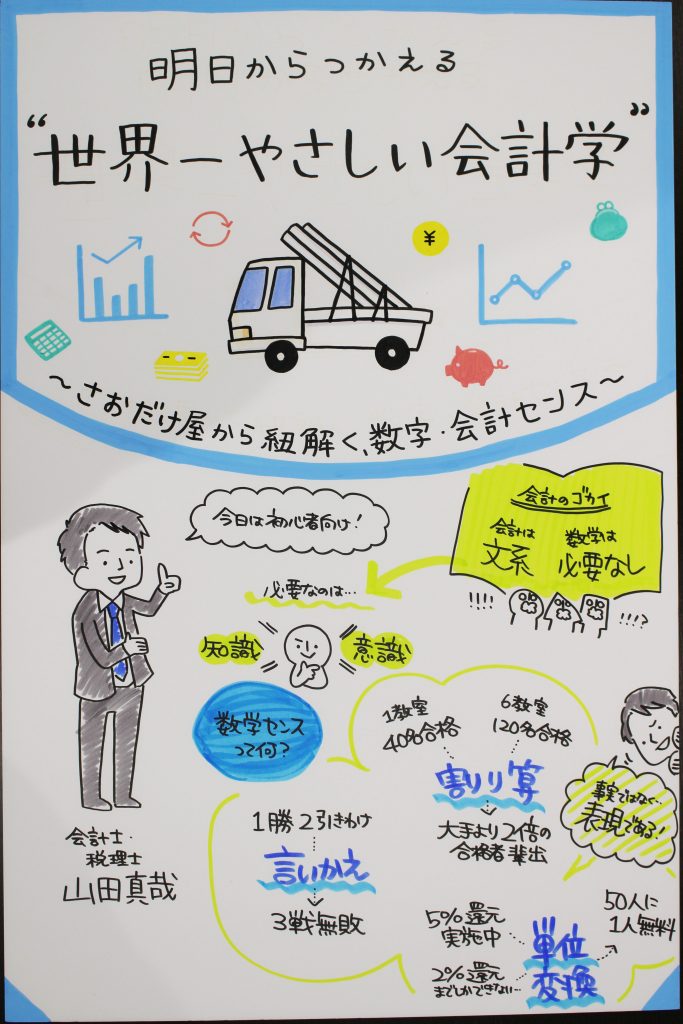 明日からつかえる
“世界一やさしい会計学”
¥
～さおだけ屋から紐解く、数字・会計センス～
今日は初心者向け!
会計のゴカイ
会計は
文系
数学は
必要なし
!!!!
!!!?
必要なのは…
知識
意識
数学センス
って何?
1教室
40名合格
6教室
120名合格
割り算
大手より2倍の
合格者輩出
事実ではなく…
表現である!
1勝2引きわけ
言いかえ
3戦無敗
会計士・
税理士
山田真哉
5%還元
実施中
2%還元
までしかできない…
単位
変換
50人に
1人無料